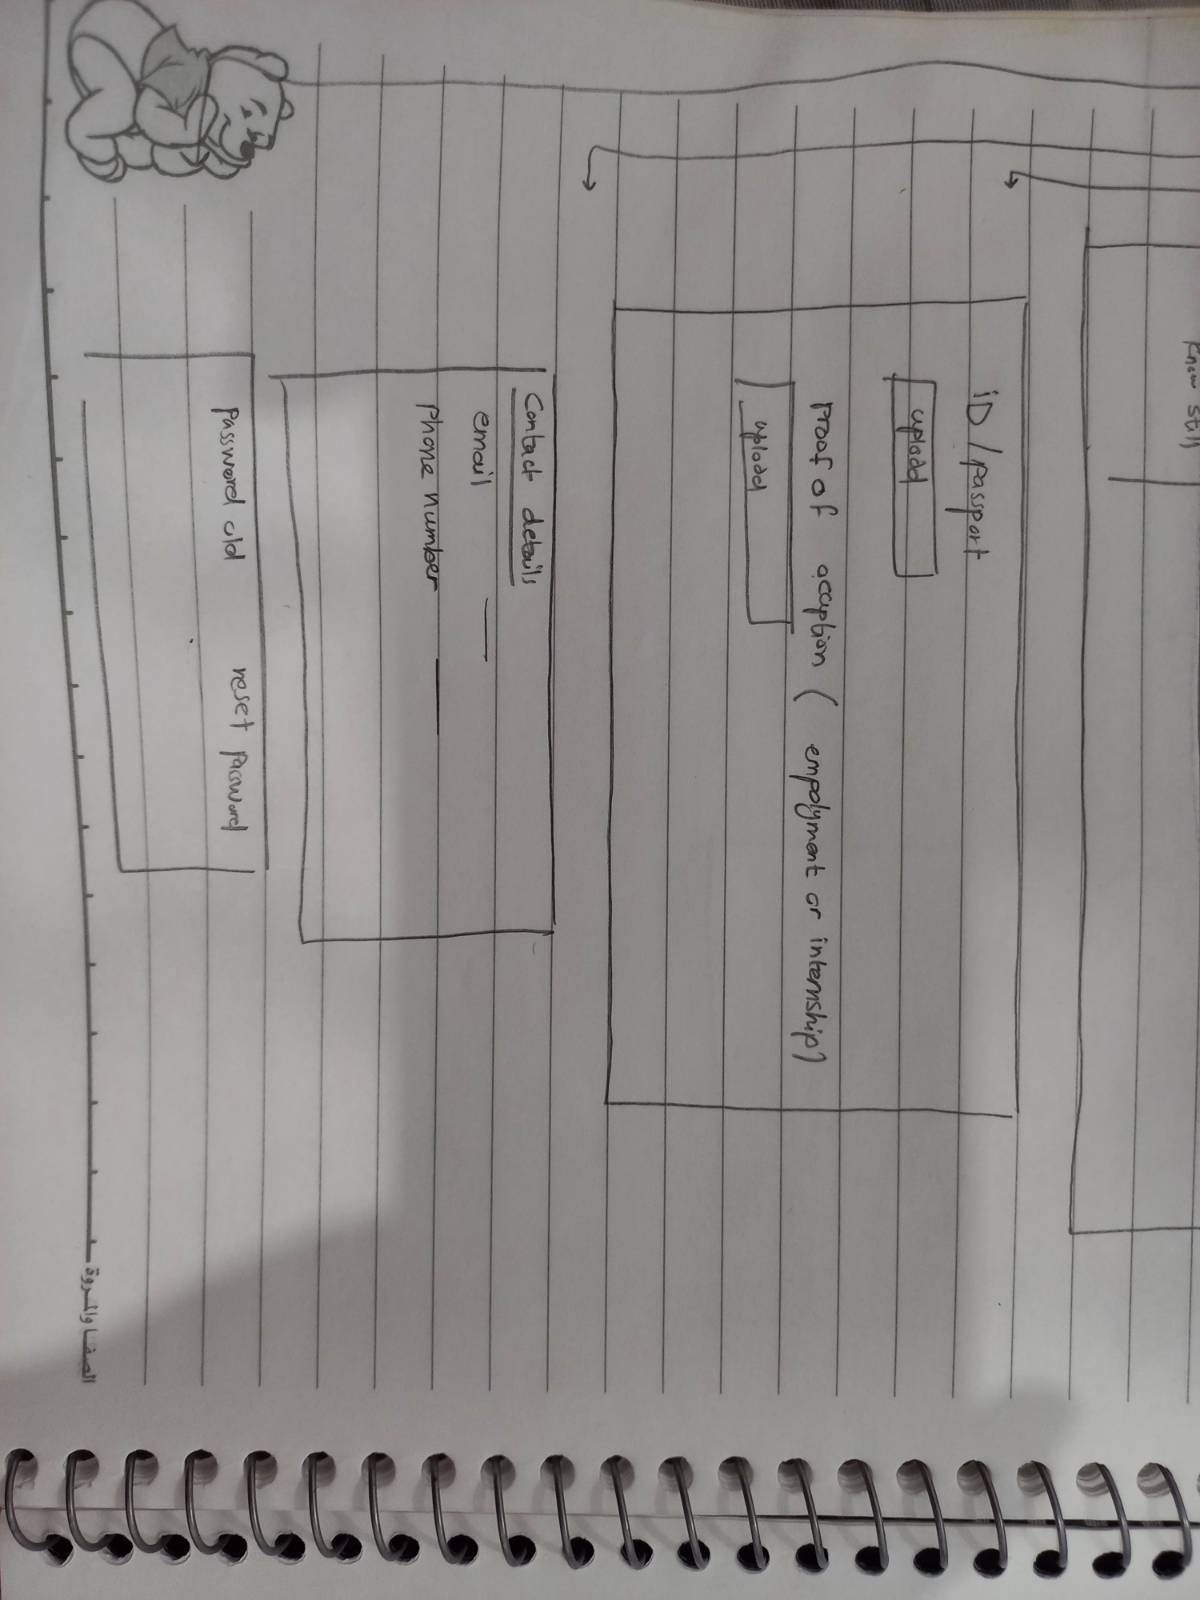 Know still
iD / passport
upload
Proof of accaption ( empolyment or internship)
upload
Contact details
email
Phone number
Password old reset password
الصفا والمروة